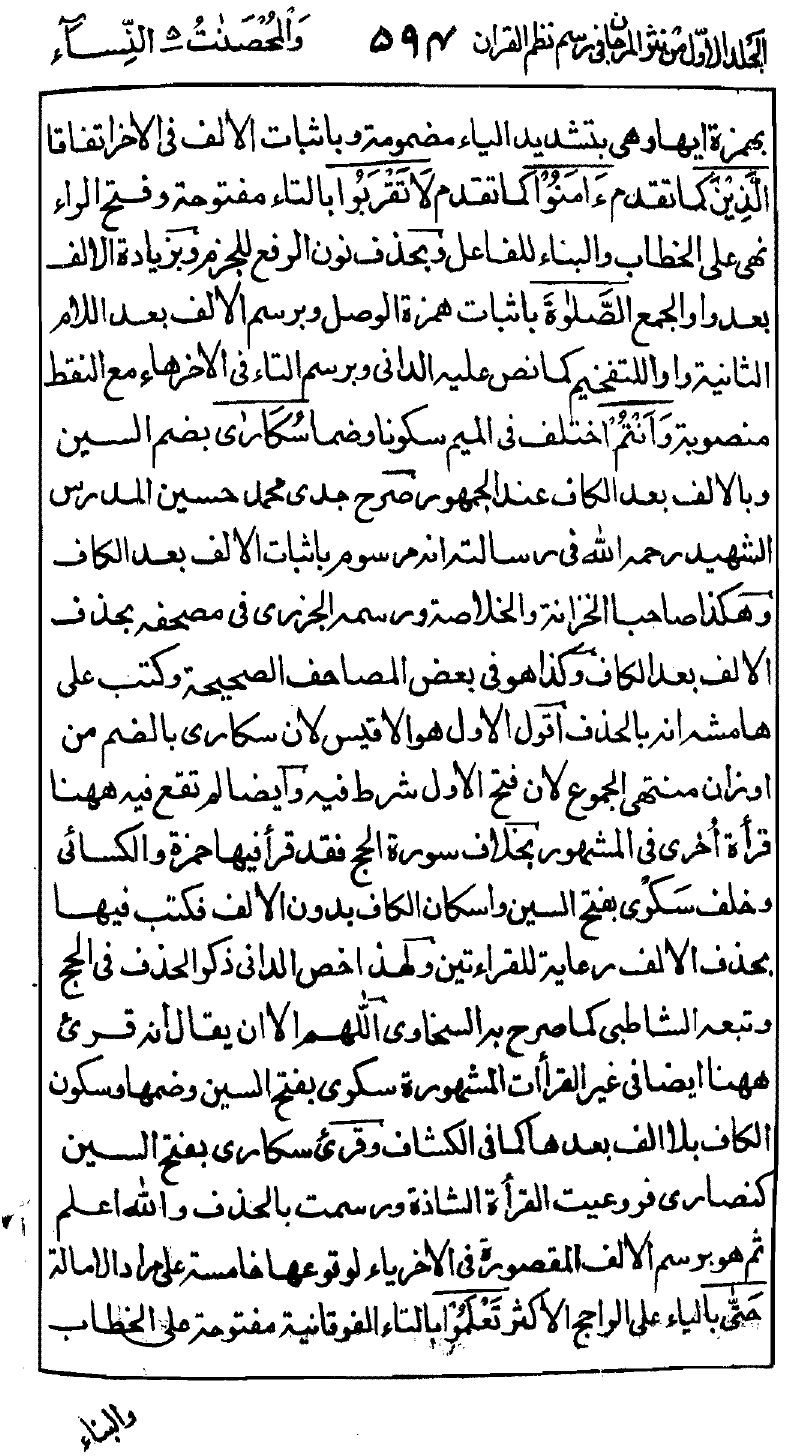 الجلد الاول من نثر المرجان فى رسم نظم القران ۵۹۴ والمحصنت ۵ النساء
بهمزة ايها وهى بتشديد الياء مضمومة وباثبات الالف فى الاخر اتفاقا
الَّذِيْنَ كما تقدم ءَامَنُوْا كما تقدم لَا تَقْرَبُوا بالتاء مفتوحة وفتح الراء
نهى على الخطاب والبناء للفاعل وبحذف نون الرفع للجزم وبزيادة الالف
بعد واو الجمع الصَّلٰوةَ باثبات همزة الوصل وبرسم الالف بعد اللام
الثانية واوا للتفخيم كما نص عليه الدانى وبرسم التاء فى الاخر هاء مع النقط
منصوبة وَاَنْتُمْ اختلف فى الميم سكونا وضما سُكَارٰى بضم السين
وبالالف بعد الكاف عند الجمهور صرح جدى محمد حسين المدرس
الشهيد رحمه الله فى رسالته انه مرسوم باثبات الالف بعد الكاف
وهكذا صاحبا الخزانة والخلاصة ورسمه الجزرى فى مصحفه بحذف
الالف بعد الكاف وكذا هو فى بعض المصاحف الصحيحة وكتب على
هامشه انه بالحذف اقول الاول هو الاقيس لان سكارى بالضم من
اوزان منتهى الجموع لان فتح الاول شرط فيه وايضا لم تقع فيه ههنا
قرأة اُخرى فى المشهور بخلاف سورة الحج فقد قرأ فيها حمزة والكسائى
وخلف سَكْرٰى بفتح السين واسكان الكاف بدون الالف فكتب فيها
بحذف الالف رعاية للقراءتين ولهذا خص الدانى ذكر الحذف فى الحج
وتبعه الشاطبى كما صرح به السخاوى اللهم الا ان يقال أنه قرئ
ههنا ايضا فى غير القرأات المشهورة سكرى بفتح السين وضمها وسكون
الكاف بلا الف بعدها كما فى الكشاف وقرئ سكارى بفتح السين
كنصارى فروعيت القرأة الشاذة ورسمت بالحذف والله اعلم
ثم هو برسم الالف المقصورة فى الاخر ياء لوقوعها خامسة على مراد الامالة
حَتّٰى بالياء على الراجح الاكثر تَعْلَمُوْا بالتاء الفوقانية مفتوحة على الخطاب
والبناء